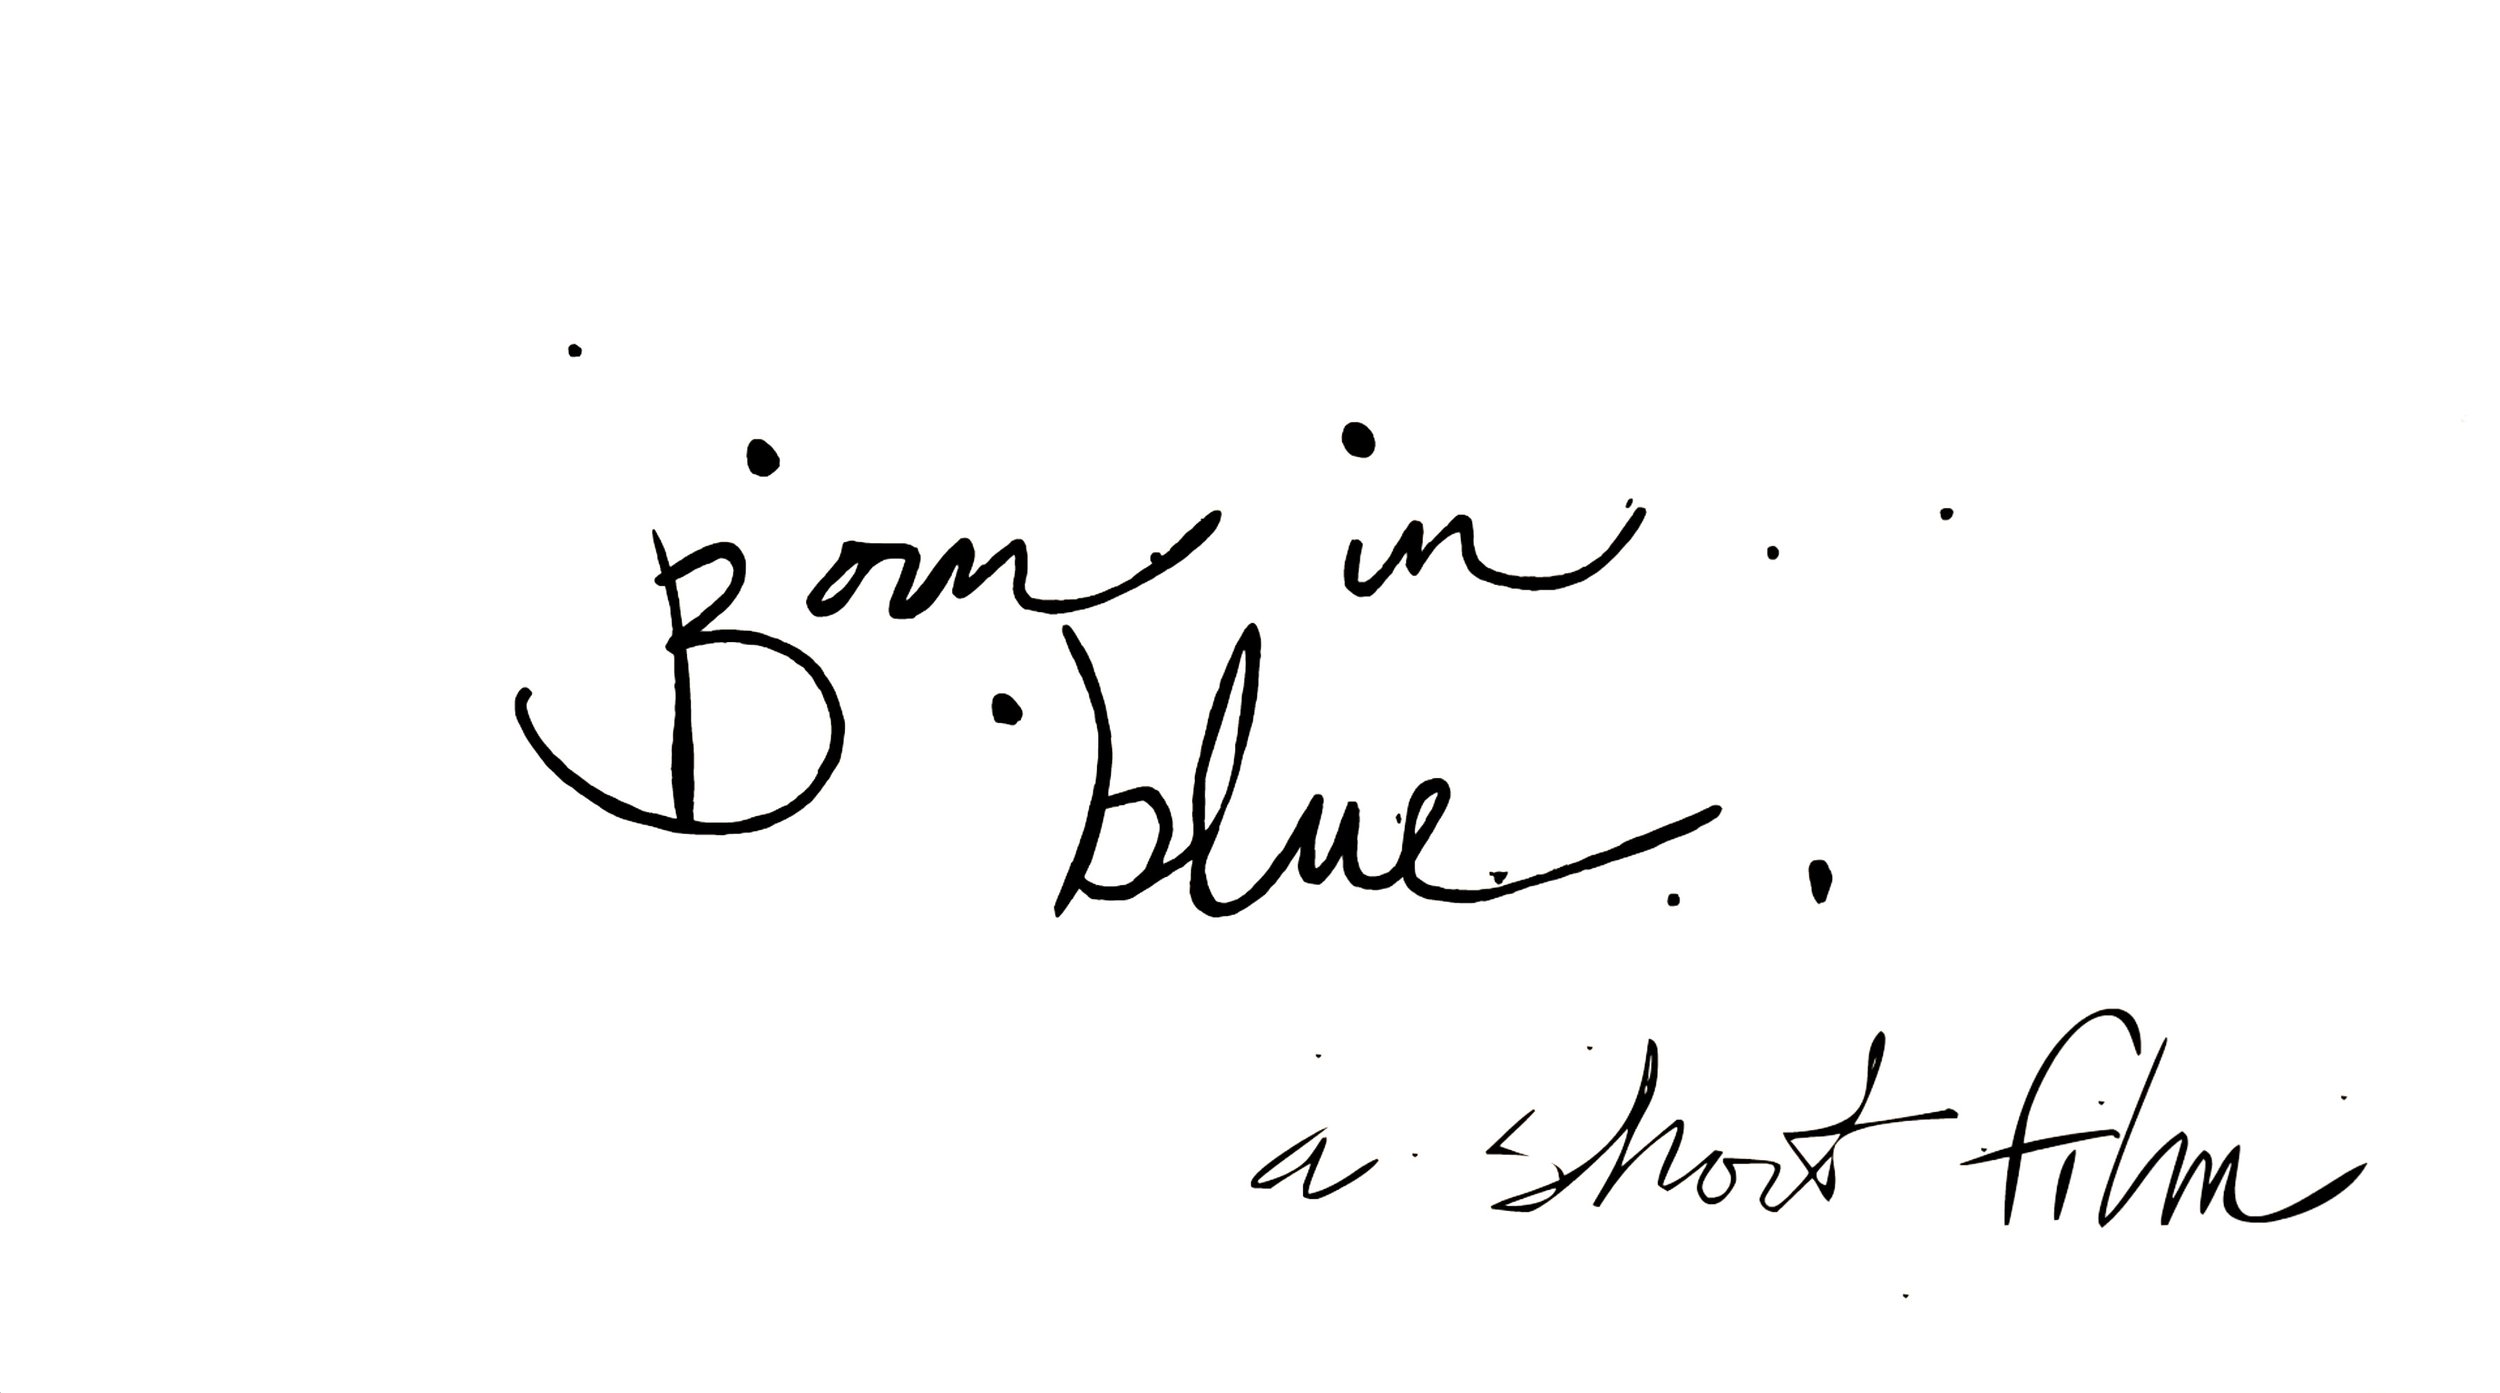 Born in
blue
a short film